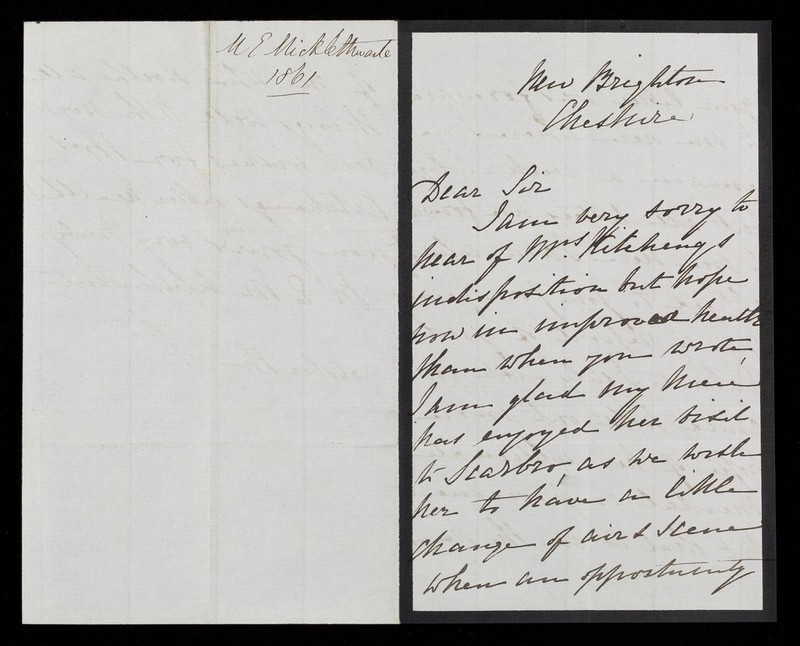 M E Micklethwaite
1861
New Brighton
Cheshire
Dear Sir
I am very sorry to
hear of Mrs. Kitching's
indisposition but hope
now in improved health
than when you wrote,
I am glad my Niece
has enjoyed her visit
to Scarbro, as we wish
her to have a little
change of air & Scene
when an opportunity